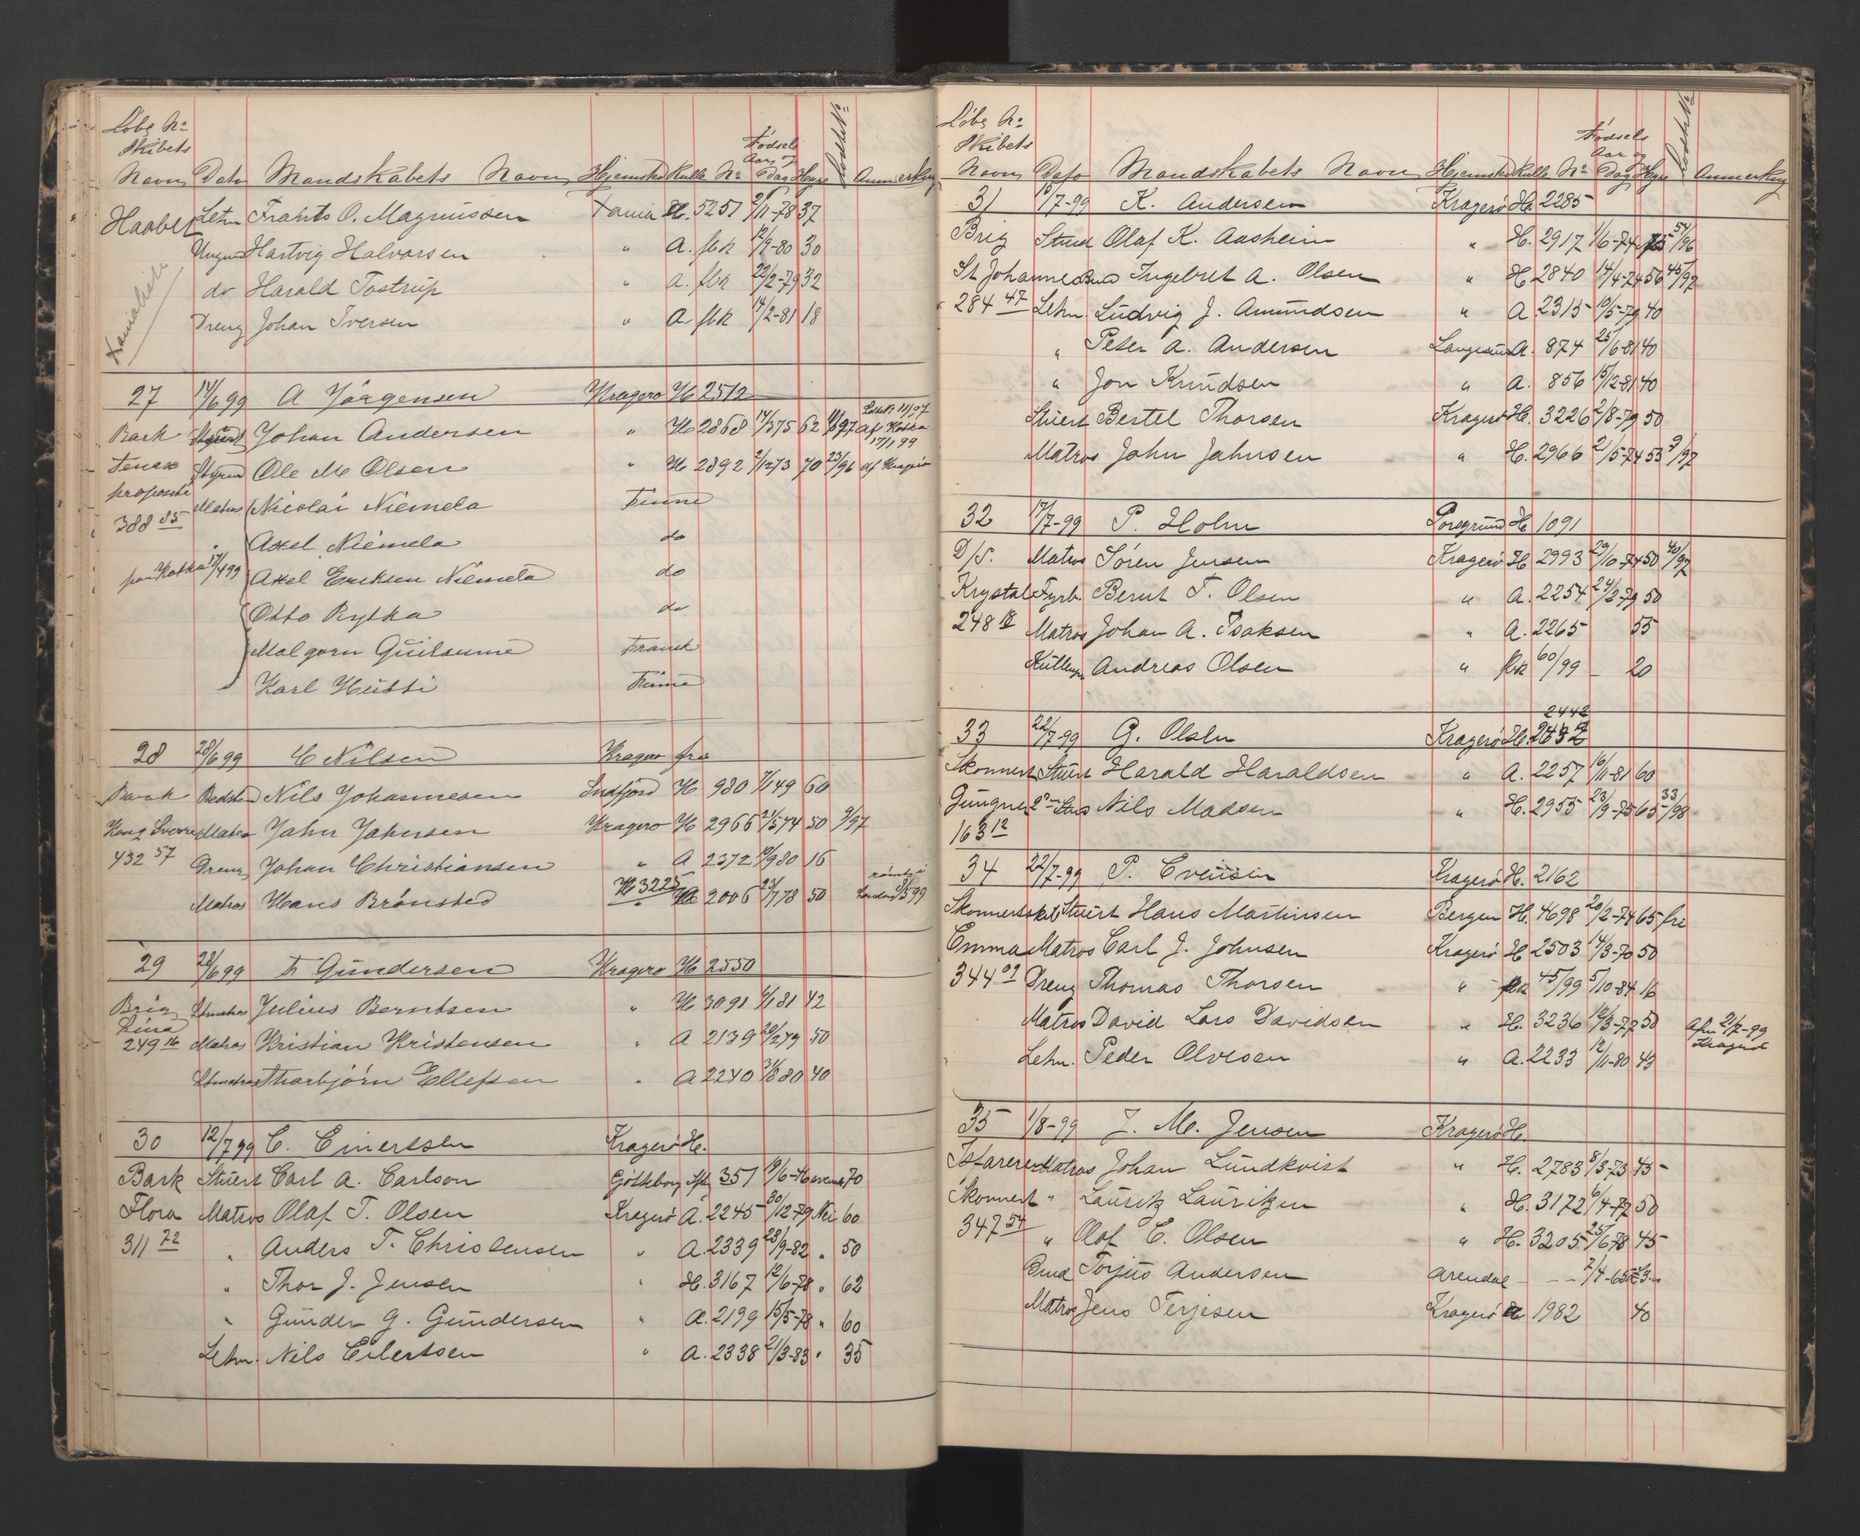 Løbe No
Skibets
Navn Dato Mandskabets Navn Hjemsted Rulle No Fødsels Aar og Dag Hyre Anmerkng
Haabet Letm Frants O. Magnussen H. 5251 9/11-78 37
Ungm Hartvig Halvorsen " A. fbk 12/9-80 30
do Harald Tostrup " A. fbk 22/2-79 32
Dreng Johan Iversen " A. fbk 14/2-81 18
27 14/6 99 A Jörgensen Kragerø H 2512
Bark Stuert Johan Andersen " H 2868 14/3 75 62 af Kotka 17/1 99
Tenax Styrm Ole M Olsen " H 2892 2/12 73 70 23/96
proposite Matros Nicolai Niemela Finne
388 85 Axel Niemela do
paa Kotka 17/4 99 Axel Eriksen Niemela do
Otto Rytka do
Malgorn Guilaume Fransk
Karl Hutti Finne
28 28/6 99 C Nilsen Kragerø fra
Bark Bedstm Nils Johannesen Indfjord H 980 7/1 49 60
Kong Sverre Matros Jahn Jahnsen Kragerø H 2966 21/5 74 50 9/97
432 57 Dreng Johan Christiansen " A 2372 10/9 80 16
Matros Hans Brønsted H 3225 2006 23/7 78 50
29 28/6 99 F Gundersen Kragerø H 2550
Brig Julius Berntsen " H 3091 6/1 81 42
Lina
249 16 Matros Kristian Kristensen " A 2139 20/2 79 50
Thorbjörn Ellefsen " A 2240 31/8 80 40
30 12/7 99 C. Einertsen Kragerø H.
Bark Stuert Carl A. Carlson Göthborg 351 19/6-76 svensk 70
Flora Matros Olaf T. Olsen Kragerø A. 2245 30/12-79 Nei 60
311 72 " Anders T. Christensen " A. 2339 23/9-82 " 50
" Thor J. Jensen " H. 3167 12/6-78 " 62
" Gunder G. Gundersen " A. 2199 15/5-78 " 60
Letm. Nils Eilertsen " A. 2338 21/3-83 " 35
Løbe No
Skibets
Navn Dato Mandskabets Navn Hjemsted Rulle No Fødsels Aar og Dag Hyre Anmerkng
31 15/7-99 K. Andersen Kragerø H. 2285
Brig Stuert Olaf K. Aasheim " H. 2917 1/6-74 75 54/96
St Johannes Ingebret A. Olsen " H 2840 14/4-74 56 45/97
284 47 Letm. Ludvig J. Amundsen " A 2315 10/5-79 40
" Peter A. Andersen Langesund A. 874 25/6-81 40
" Jon Knudsen " A. 856 15/12-81 40
Stuert Bertel Thorsen Kragerø H. 3226 2/8-79 50
Matros John Jahnsen " H. 2966 21/5-74 53 9/97
32 17/7-99 P. Holm Porsgrund H 1091
D/S. Matros Søren Jensen Kragerø H 2993 29/10-74 50 40/97
Krystal Fyrb. Bernt T. Olsen " A. 2254 24/2-79 50
248 18 Matros Johan A. Isaksen " A. 2265 55
Andreas Olsen " fbk 60/99 - 20
2442
33 22/7-99 G. Olsen Kragerø H.
Skonnert Stuert Harald Haraldsen " A. 2257 16/11-81 60
Gungner Nils Madsen " H. 2955 23/9-75 65 33/98
163 12
34 22/7-99 P. Evensen Kragerø H. 2162
Skonnertskib Stuert Hans Martinsen Bergen H. 4698 20/2-74 65 fri
Emma Matros Carl J. Johnsen Kragerø H 2503 14/3-70 50
344 09 Dreng Thomas Thorsen " fbk 45/99 5/10-84 16
Matros David Lars Davidsen " H. 3236 12/3-77 50 Afm 21/7-99 Kragerø
Letm. Peder Olvesen " A. 2233 12/11-80 43
35 1/8-99 J. M. Jensen Kragerø H.
Isfareren Matros Johan Lundkvist " H. 2783 8/3-73 45
Skonnert " Lauritz Lauritzen " H. 3172 6/4-77 50
347 54 " Olaf C. Olsen " H. 3205 25/6 78 45
Torjus Andersen Arendal - - - 7/4-65
Matros Jens Terjesen Kragerø A 1982 40